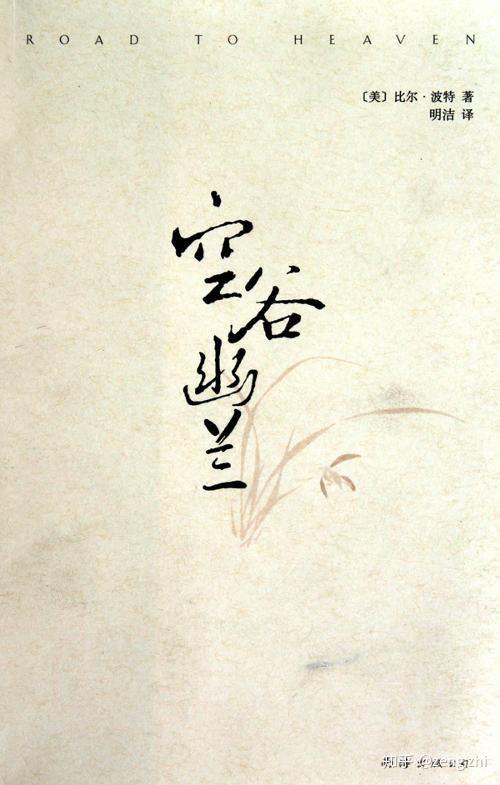 ROAD TO HEAVEN
〔美〕比尔·波特 著
明洁 译
空谷幽兰
知乎 @zengzhi